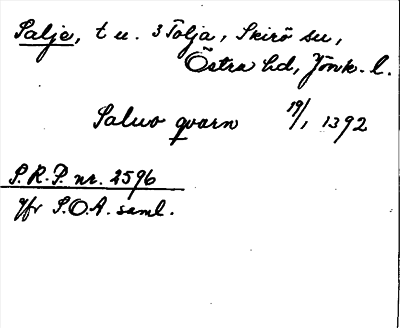 Salje, t u. 3 Tolja, Skirö sn,
Östra hd, Jönk. l.
Saluo qvarn 19/1 1392
S.R.P. nr. 2596
jfr S.O.A. saml.